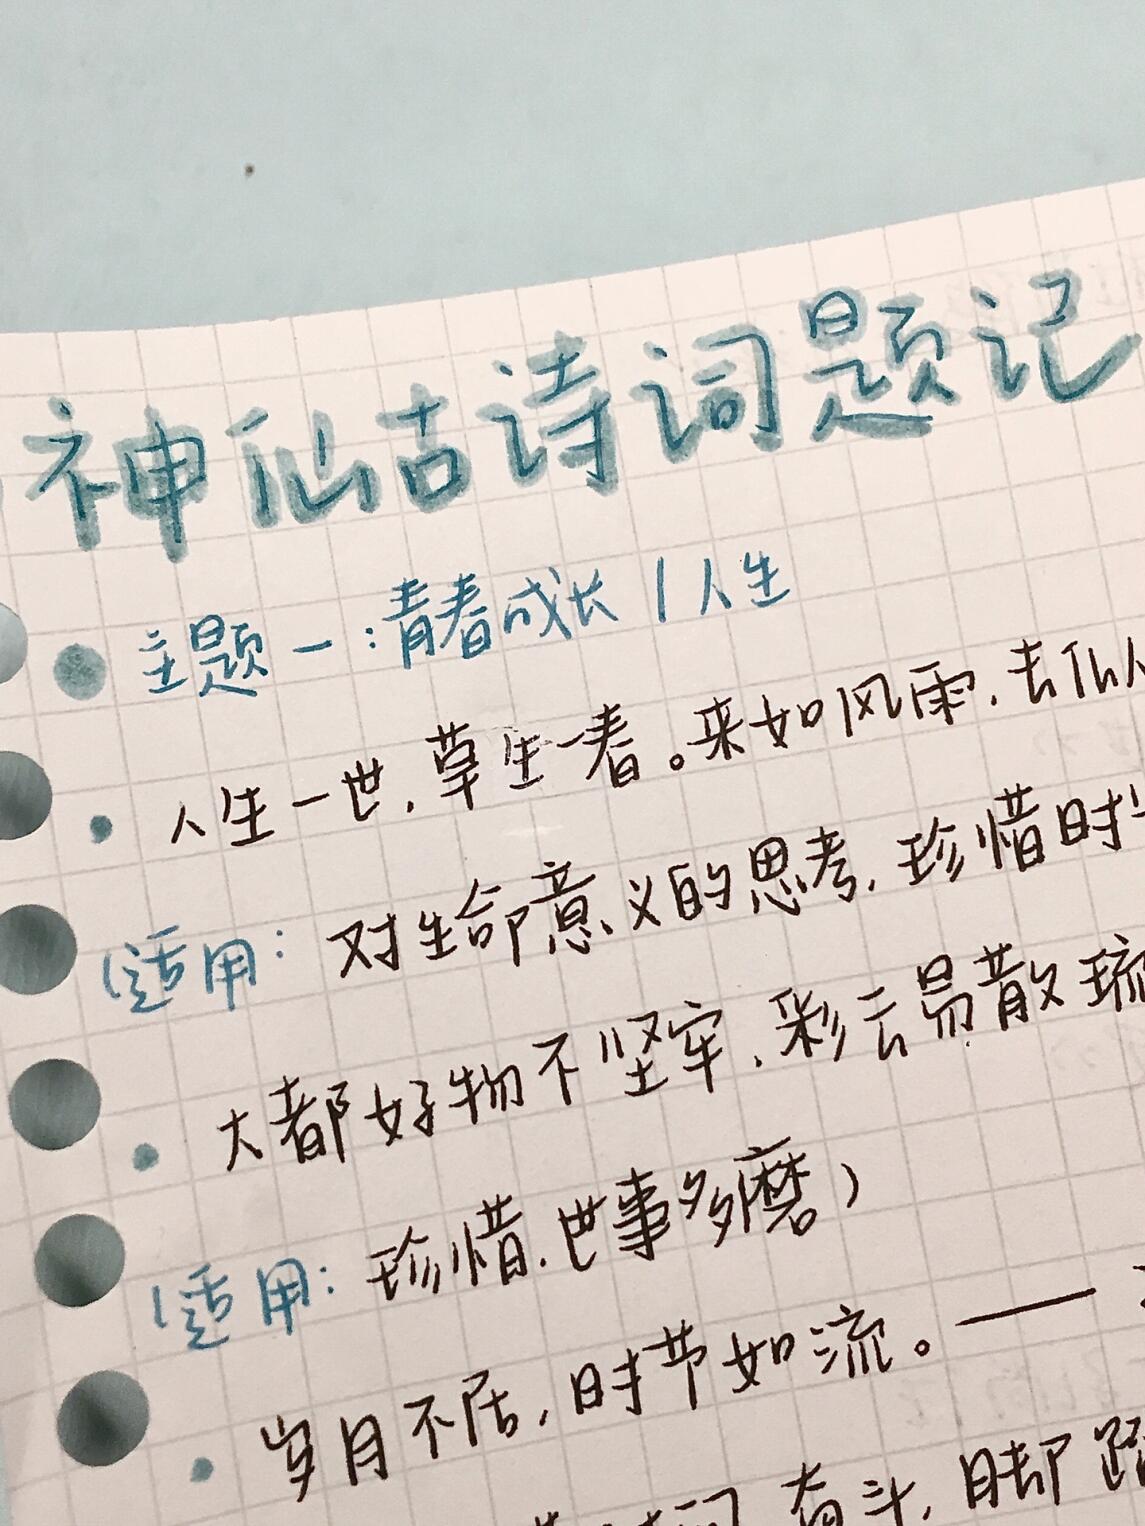 神仙古诗词题记
主题一:青春成长/人生
人生一世,草生一春。来如风雨,去似
(适用:对生命意义的思考,珍惜时
大都好物不坚牢,彩云易散琉
(适用:珍惜,世事多磨)
岁月不居,时节如流。——
奋斗,脚踏